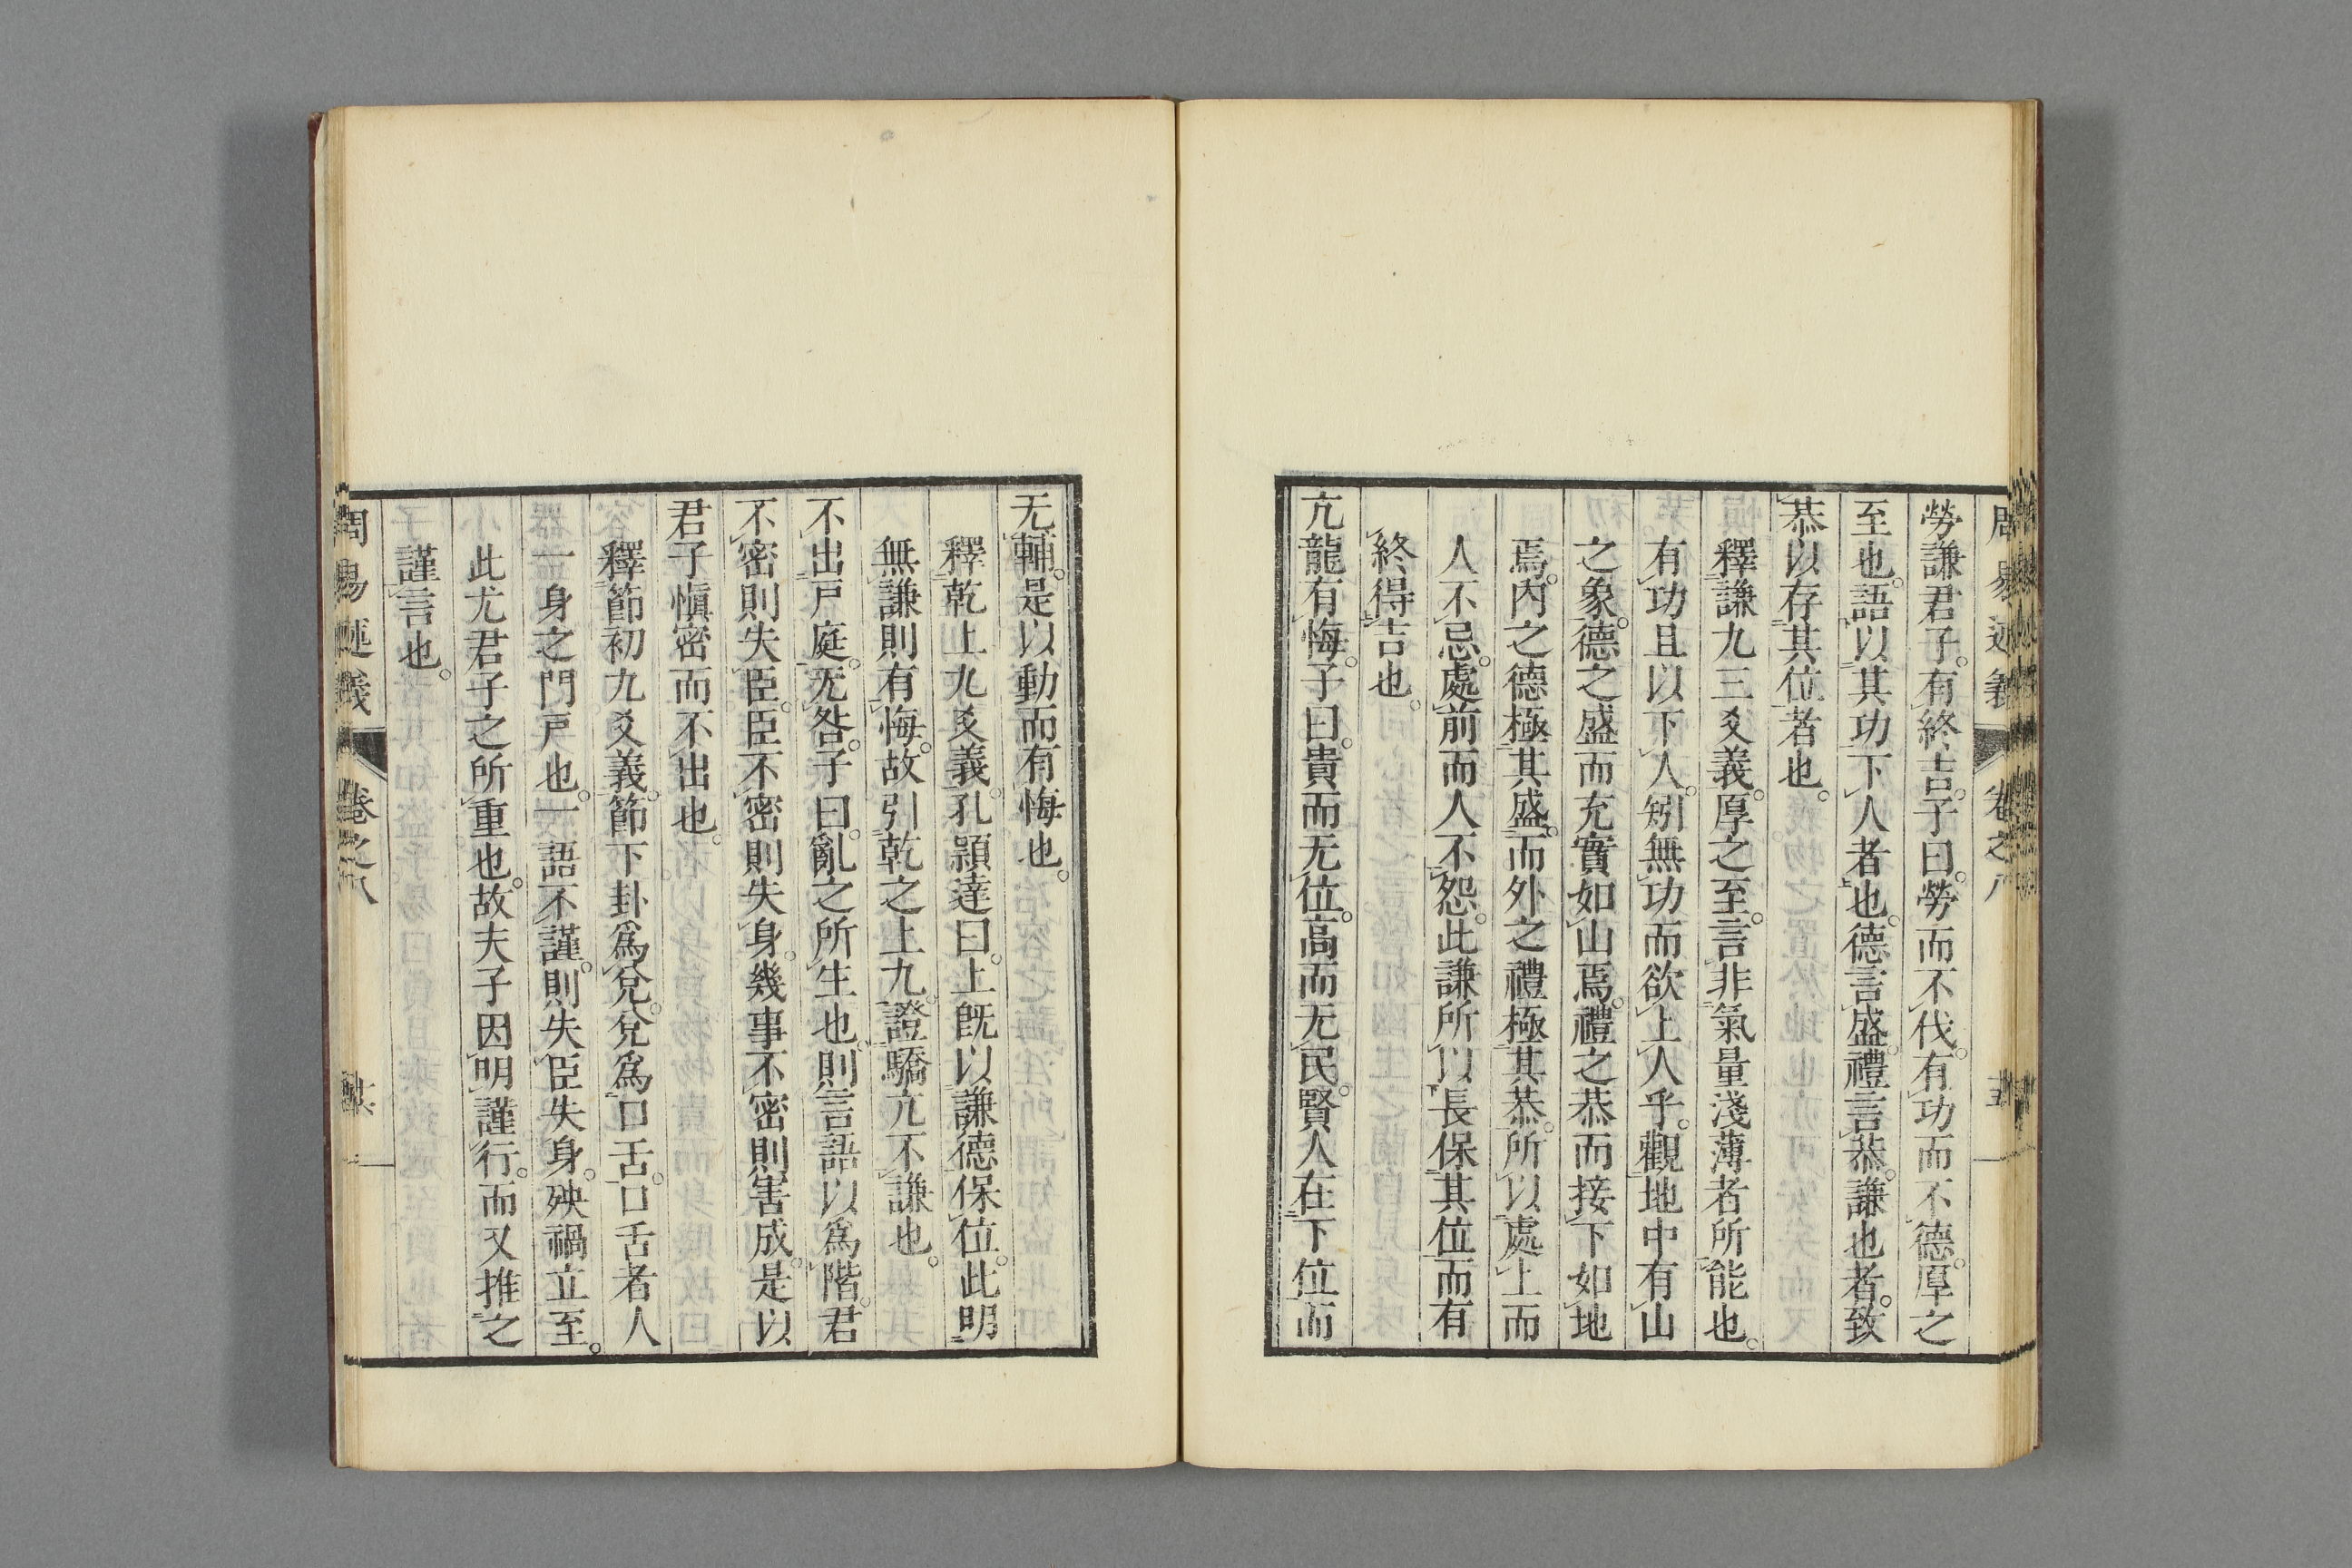 周易述義 卷之八 五
勞謙君子。有終吉。子曰。勞而不伐。有功而不德。厚之
至也。語以其功下人者也。德言盛。禮言恭。謙也者。致
恭以存其位者也。
釋謙九三爻義。厚之至。言非氣量淺薄者所能也。
有功且以下人。矧無功而欲上人乎。觀地中有山
之象。德之盛而充實如山焉。禮之恭而接下如地
焉。內之德極其盛。而外之禮極其恭。所以處上而
人不忌。處前而人不怨。此謙所以長保其位而有
終得吉也。
亢龍有悔。子曰。貴而无位。高而无民。賢人在下位而
无輔。是以動而有悔也。
釋乾上九爻義。孔穎達曰。上旣以謙德保位。此明
無謙則有悔。故引乾之上九。證驕亢不謙也。
不出戶庭。无咎。子曰。亂之所生也。則言語以爲階。君
不密則失臣。臣不密則失身。幾事不密則害成。是以
君子愼密而不出也。
釋節初九爻義。節下卦爲兌。兌爲口舌。口舌者人
一身之門戶也。一語不謹。則失臣失身。殃禍立至。
此尤君子之所重也。故夫子因明謹行。而又推之
謹言也。
周易述義 卷之八